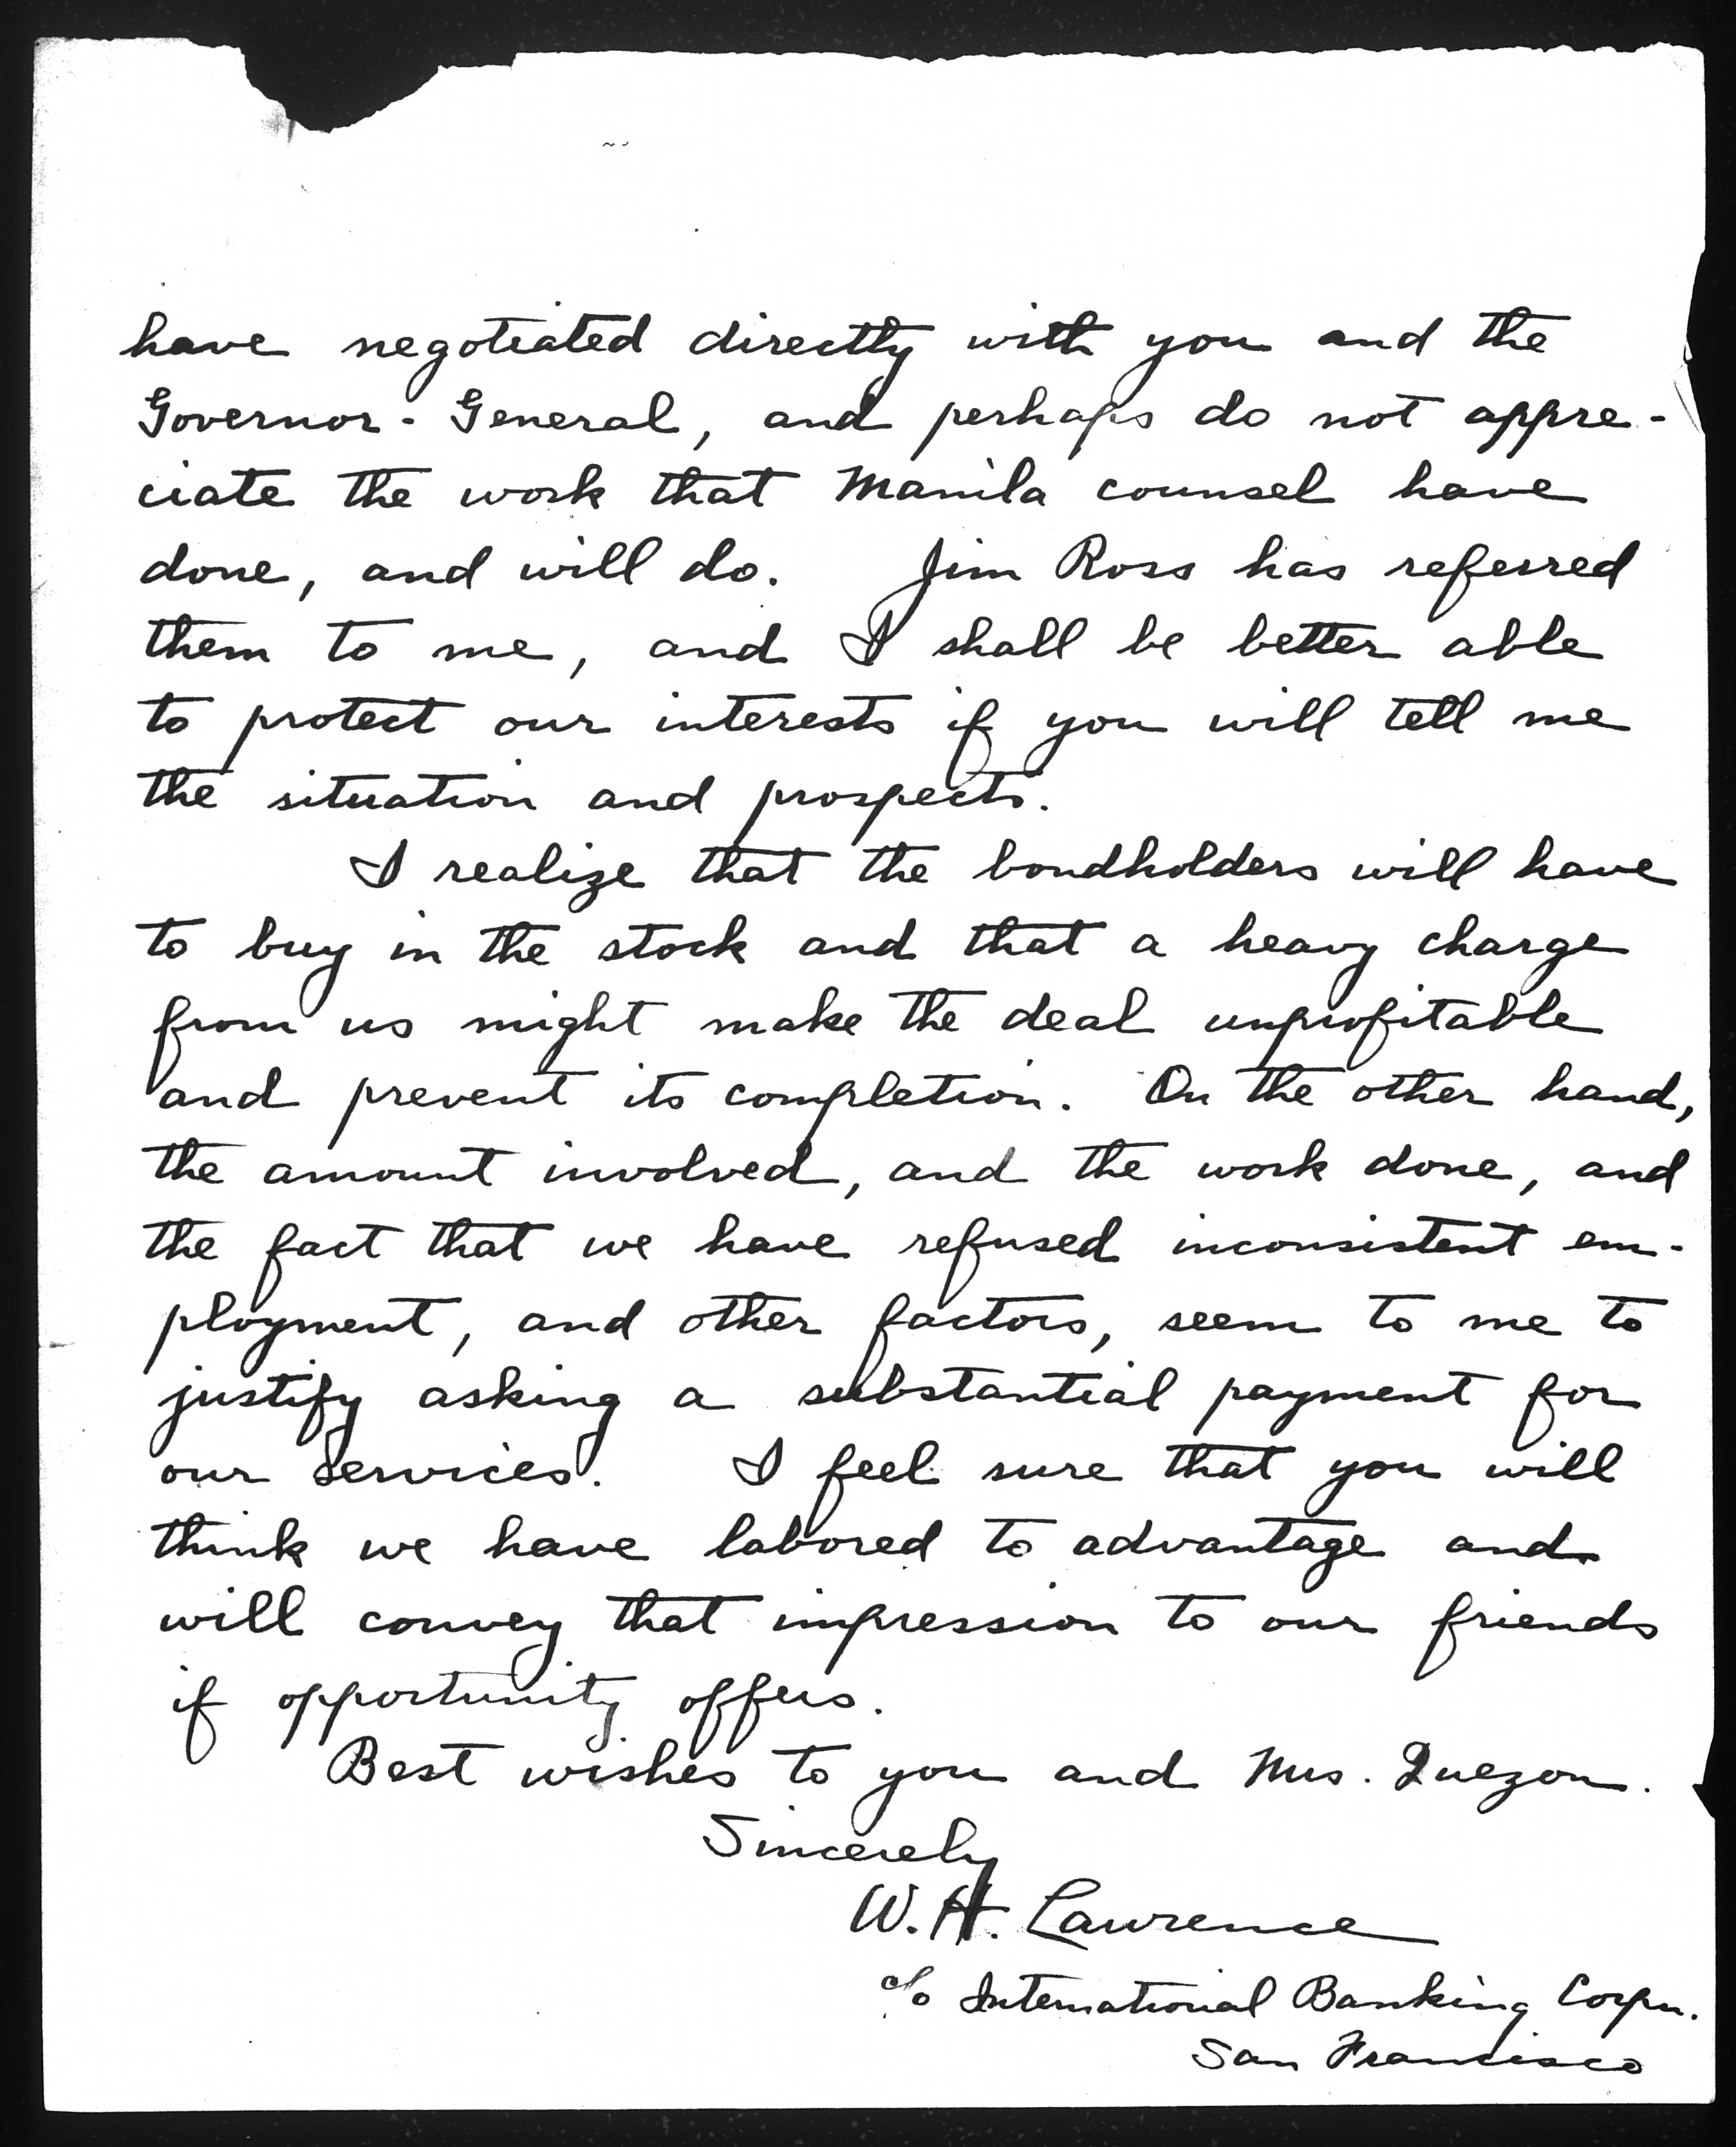 have negotiated directly with you and the
Governor-General, and perhaps do not appre-
ciate the work that Manila counsel have
done, and will do. Jim Ross has referred
them to me, and I shall be better able
to protect our interests if you will tell me
the situation and prospects.
I realize that the bondholders will have
to buy in the stock and that a heavy charge
from us might make the deal unprofitable
and prevent its completion. On the other hand,
the amount involved, and the work done, and
the fact that we have refused inconsistent em-
ployment, and other factors, seem to me to
justify asking a substantial payment for
our services. I feel sure that you will
think we have labored to advantage and
will convey that impression to our friends
if opportunity offers.
Best wishes to you and Mrs. Quezon.
Sincerely
W. H. Lawrence
c/o International Banking Corpn.
San Francisco